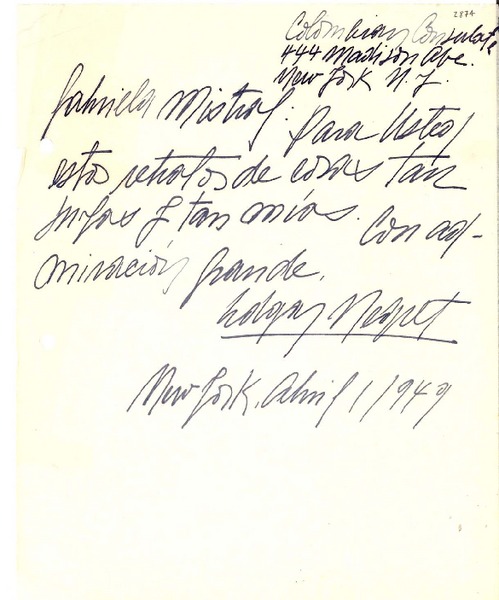 2874
Colombian Consulate
444 Madison Ave.
New York N.Y.
Gabriela Mistral: Para Usted
estos retratos de cosas tan
suyas y tan mías. Con ad-
miración grande.
Edgar Negret
New York, Abril 1/1949